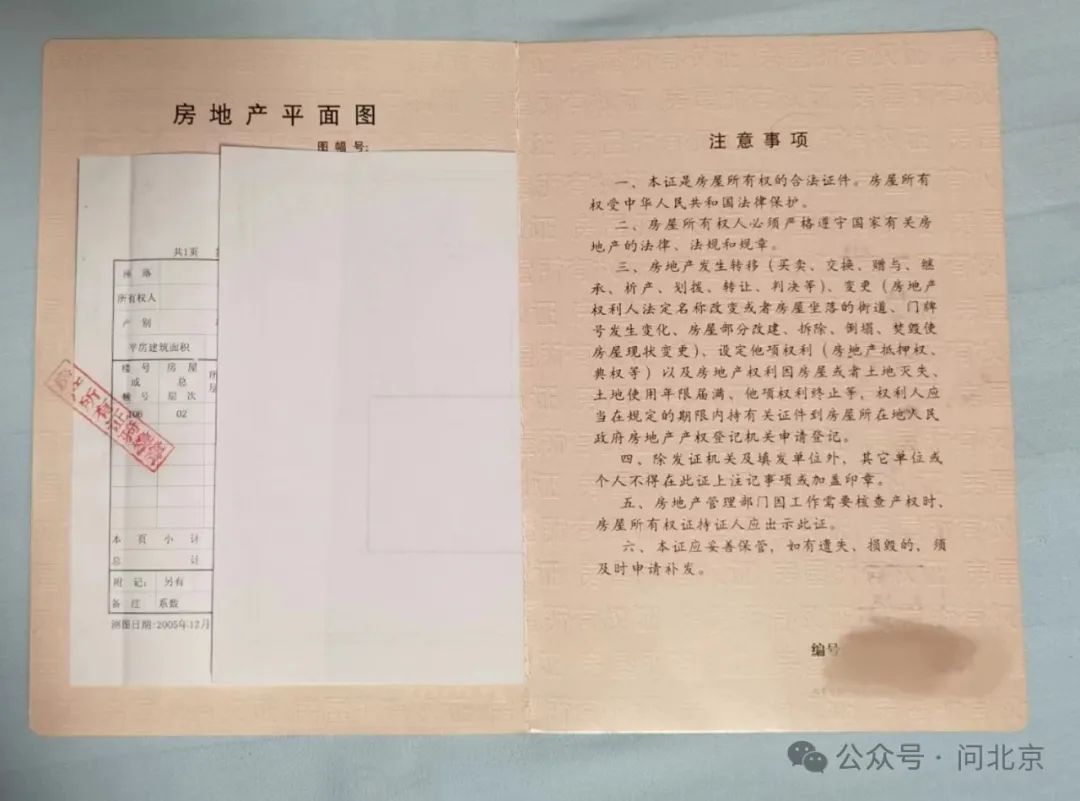 房地产平面图
图幅号:
共1页
座落
所有权人
产别
平房建筑面积
楼号或幢号
房屋总层次
106
02
本页小计
总计
附记: 另有
备注 系数
测图日期:2005年12月
注意事项
一、本证是房屋所有权的合法证件。房屋所有
权受中华人民共和国法律保护。
二、房屋所有权人必须严格遵守国家有关房
地产的法律、法规和规章。
三、房地产发生转移（买卖、交换、赠与、继
承、析产、划拨、转让、判决等）、变更（房地产
权利人法定名称改变或者房屋坐落的街道、门牌
号发生变化、房屋部分改建、拆除、倒塌、焚毁使
房屋现状变更）、设定他项权利（房地产抵押权、
典权等）以及房地产权利因房屋或者土地灭失、
土地使用年限届满、他项权利终止等，权利人应
当在规定的期限内持有关证件到房屋所在地人民
政府房地产产权登记机关申请登记。
四、除发证机关及填发单位外，其它单位或
个人不得在此证上注记事项或加盖印章。
五、房地产管理部门因工作需要核查产权时，
房屋所有权证持证人应出示此证。
六、本证应妥善保管，如有遗失、损毁的，须
及时申请补发。
编号
公众号·问北京